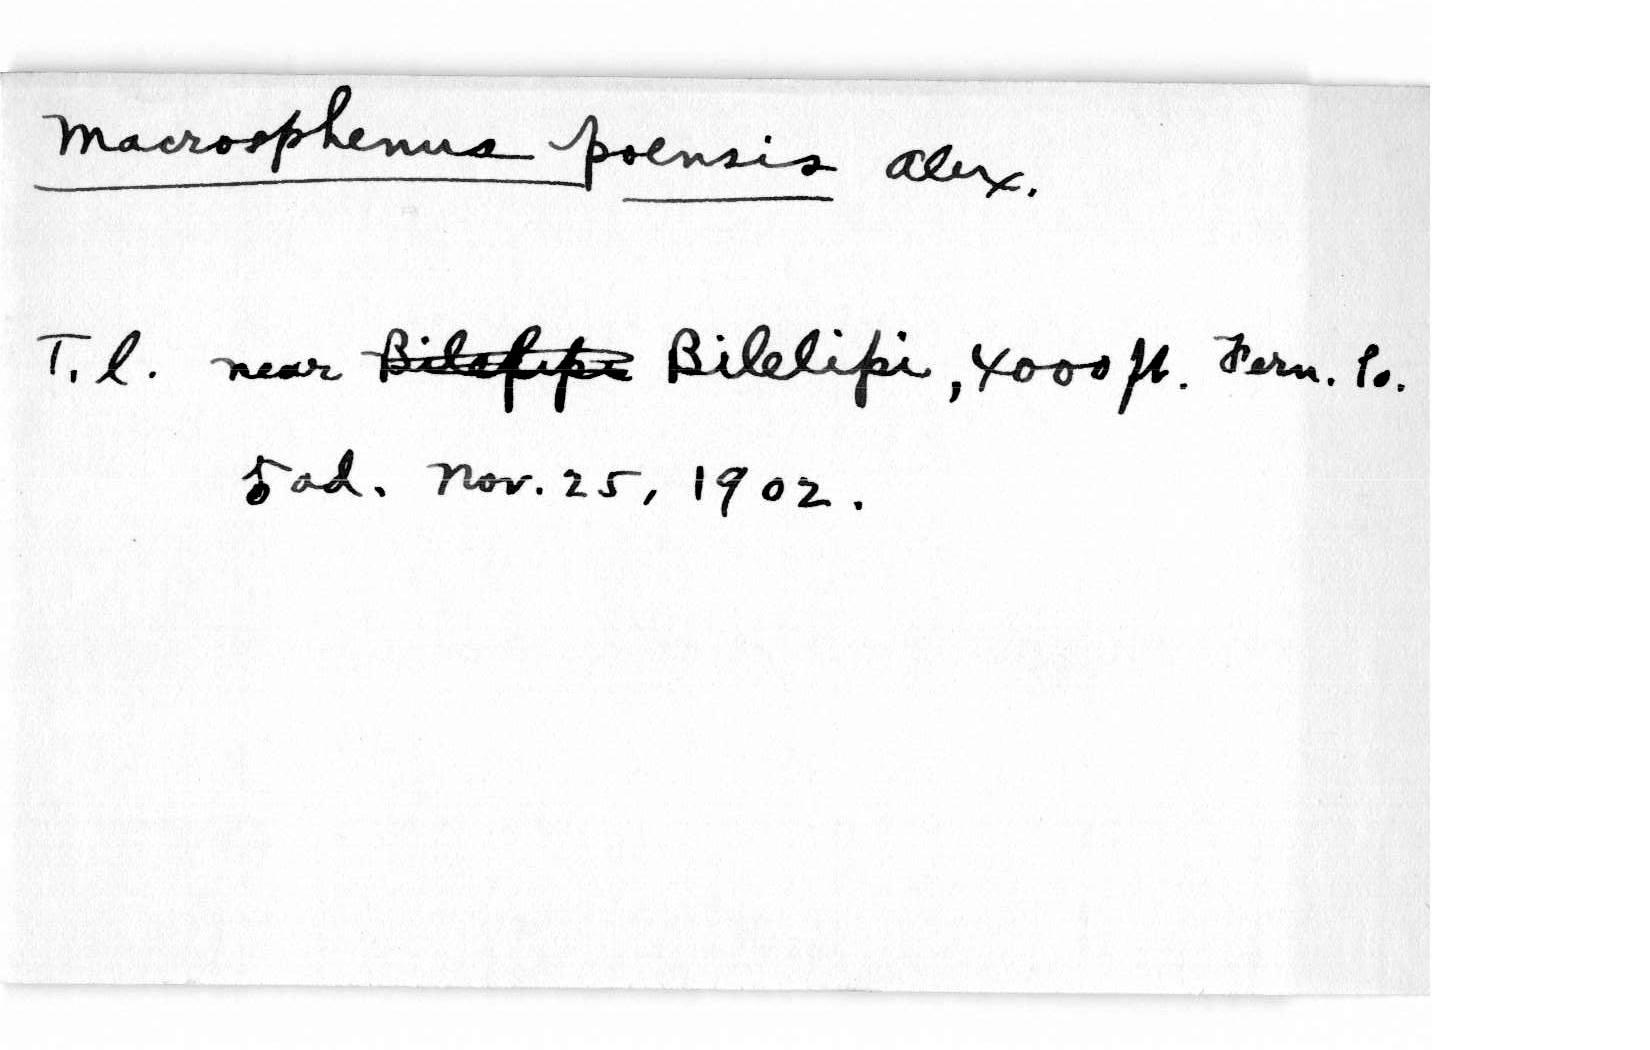 Macrosphenus poensis Alex.
T. l. near Bilelipi, 4000 ft. Fern. Po.
ad. Nov. 25, 1902.